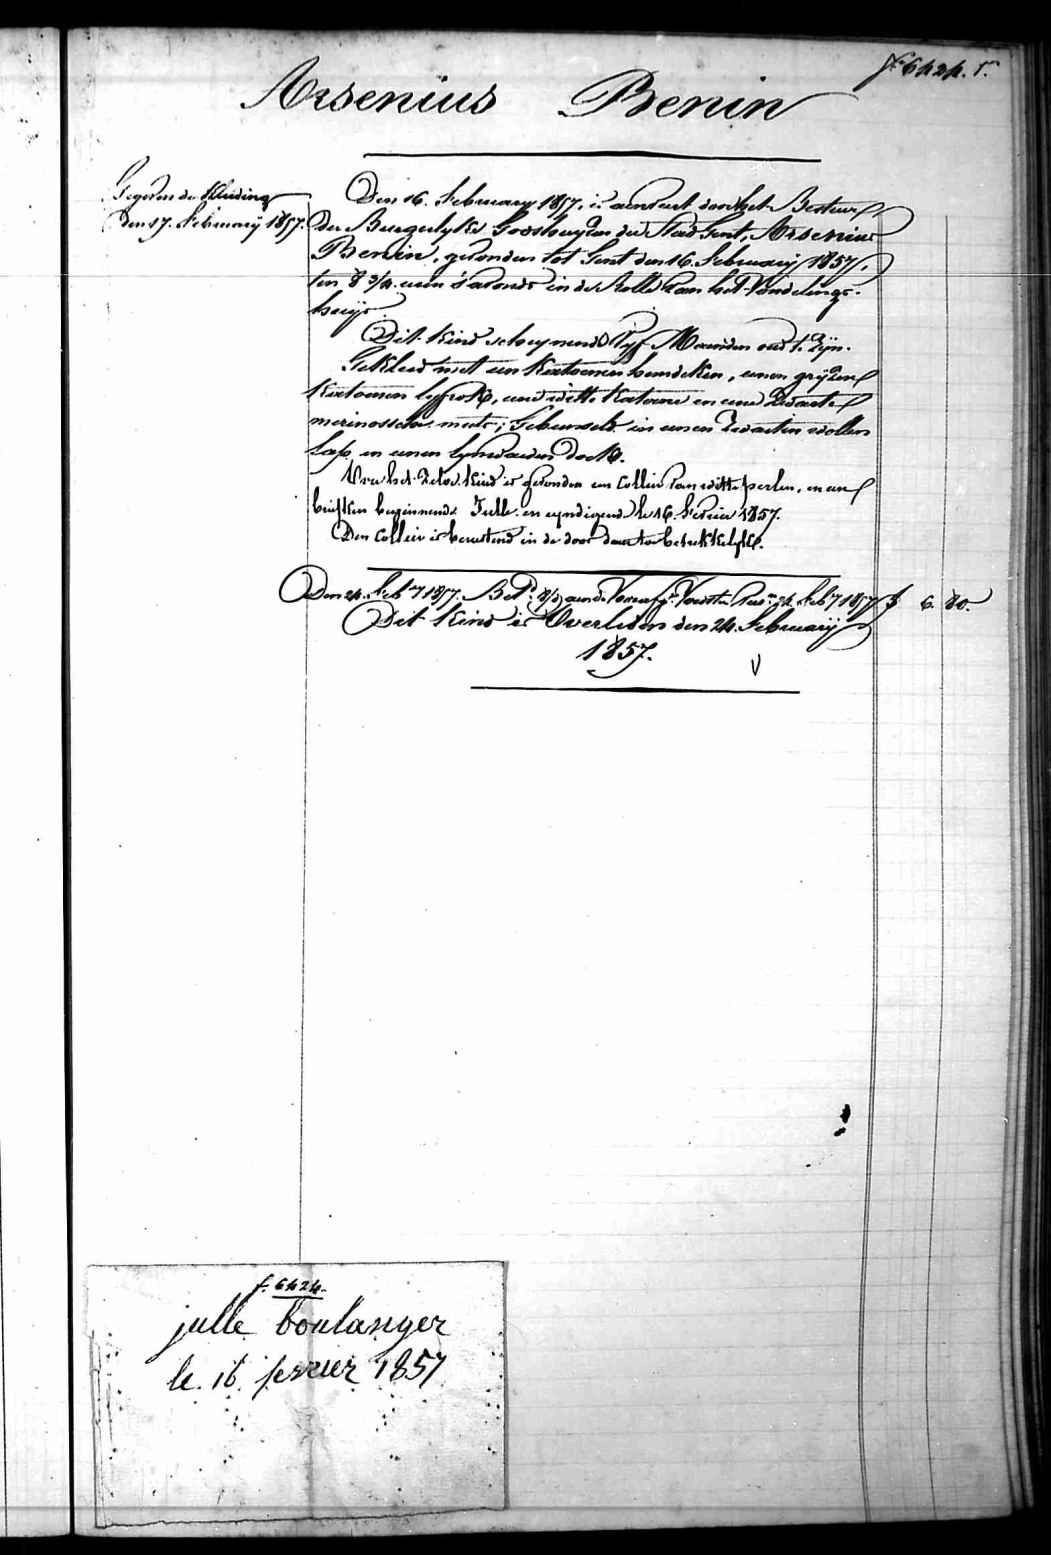 f° 6424. r.
Arsenius Benin
Gegeven de Kleeding
den 17. February 1857.
Den 16. February 1857, is aenveert door het Bestuur
der Burgerlyke Godshuyzen der Stad Gent, Arsenius
Benin, gevonden tot Gent den 16. February 1857,
ten 8 3/4 uren s'avonds in de Rolle van het Vondelings-
huijs.
Dit Kind scheynende Vyf Maenden oud te Zijn.
Gekleed met een Kattoenen hemdeken, eenen gryzen
Kattoenen lyfrok, eene witte Katoene en eene Zwarte
merinossche muts; Gebunseld in eenen Zwarten wollen
lap en eenen lynwaeden Dock.
Van het Zelve Kind is gevonden een Collier van witte perlen, en een
briefken beginnende Julle en eyndigende le 16. Fevrier 1857.
Den Collier is berustend in de doos daertoe betrekkelyk.
Den 24. Feb.ry 1857. Bet.d aen de Voesterf 24 Feb.ry 1857 f 6. 80.
Dit Kind is Overleden den 24. February
1857.
f. 6424.
julle boulanger
le. 16. fevrier 1857